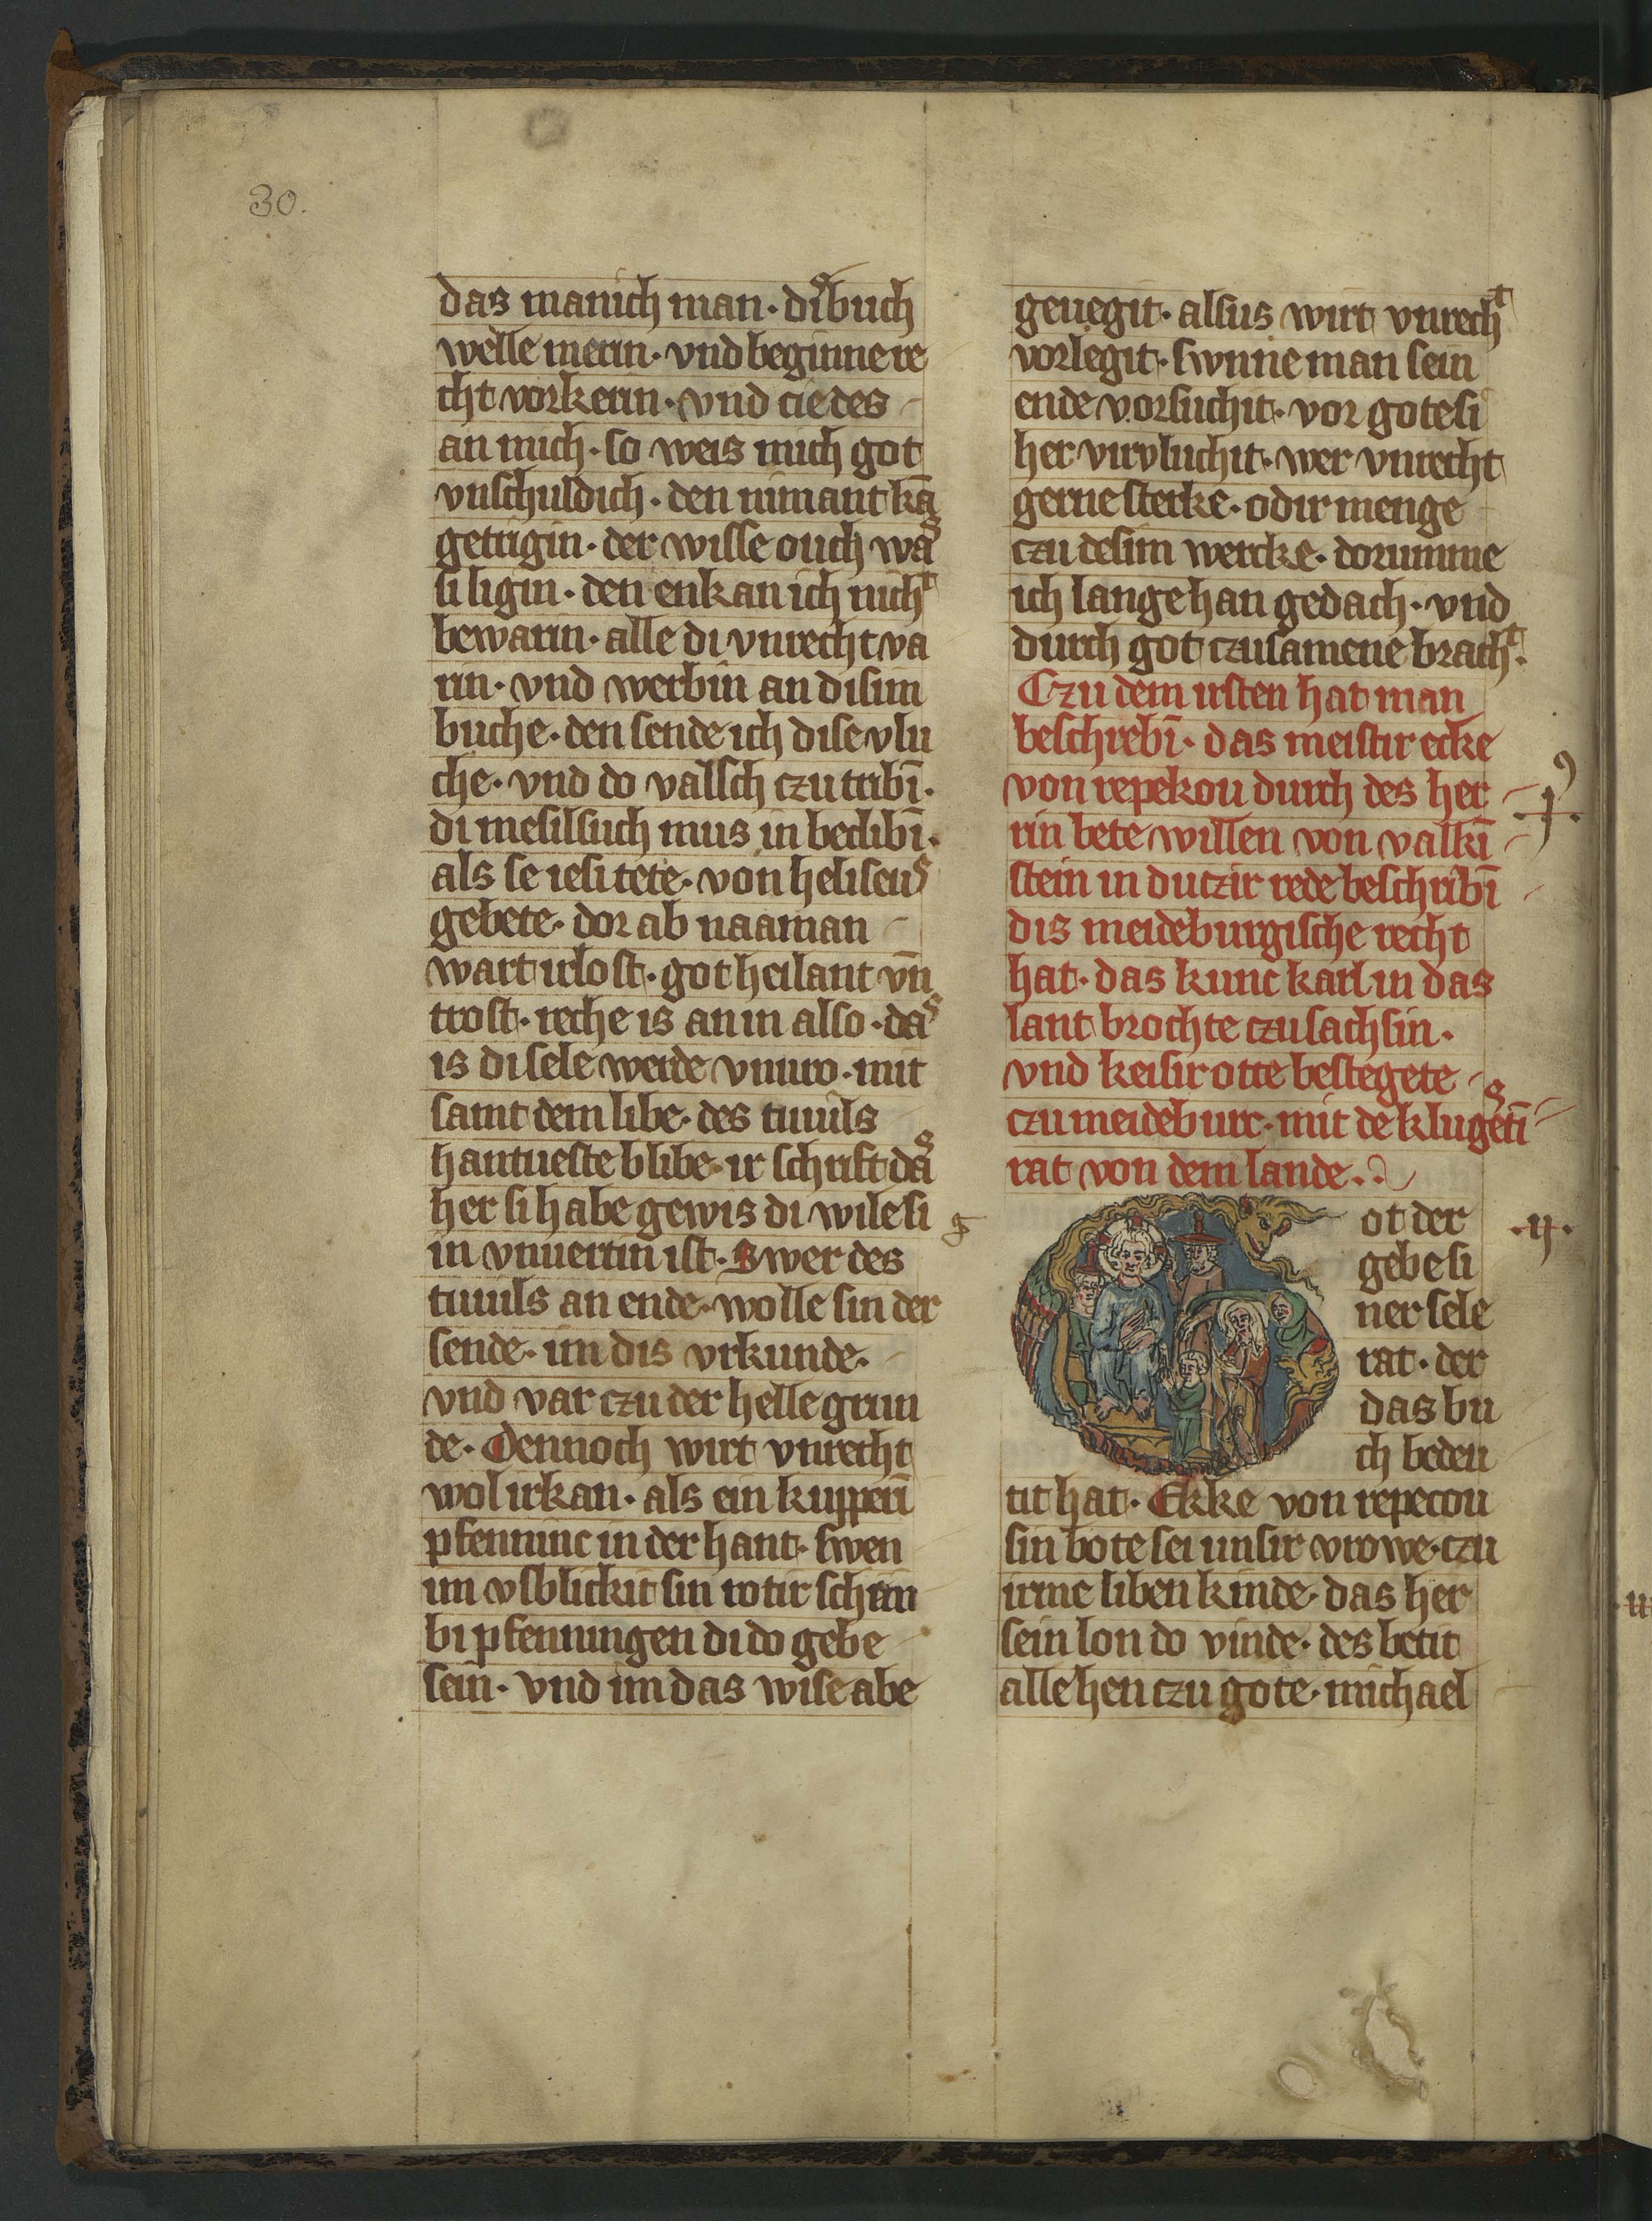 30.
das manich man · diˢ buch
welle merin · vnd beginne re
cht vorkerin · vnd cie des
an mich · so weis mich got
vnschuldich · den nimant kā
getrigin · der wisse ouch waˢ
si ligin · den enkan ich nichᵗ
bewarin · alle di vnrecht va
rin · vnd werbin an disim
buche · den sende ich dise vlu
che · vnd do valsch czu tribī ·
di meselsuch mus in beclibī ·
als se iesi tete · von heliseuˢ
gebete · dor ab naaman
wart irlost · got heilant vn̄
trost · reche is an in also · daˢ
is di sele werde vnuro · mit
samt dem libe · des tiuuils
hantueste blibe · ir schrift daˢ
her si habe gewis di wile si
in vnuertin ist · Swer des
tiuuils an ende · wolle sin der
sende · im dis vrkunde ·
vnd var czu der helle grun
de · Dennoch wirt vnrecht
wol irkan · als ein kupperī
pfenninc in der hant · swen
im vsblickit sin rotir schein
bi pfenningen di do gebe
sein · vnd im das wise abe
geuegit · alsus wirt vnrechᵗ
vorlegit · swnne man sein
ende vorsuchit · vor gote si
her virvluchit · wer vnrecht
gerne sterke · odir menge
czu desim wercke · dorumme
ich lange han gedach · vnd
durch got czusamene brachᵗ ·
Czu dem irsten hat man
beschrebī · das meistir ecke
von repekou durch des her
rin bete willen von valkī
stein in dutzir rede beschribī
dis meideburgische recht
hat · das kunc karl in das
lant brochte czu sachsin ·
vnd keisir otte bestegete
czu meideburc · mit deˢ klugetī
rat von dem lande ·
ot der
gebe si
ner sele
rat · der
das bu
ch beden
tit hat · Ekke von repecou
sin bote sei unsir vrowe · czu
irme liben kinde · das her
sein lon do vinde · des betit
alle hen czu gote · michael
· ij ·